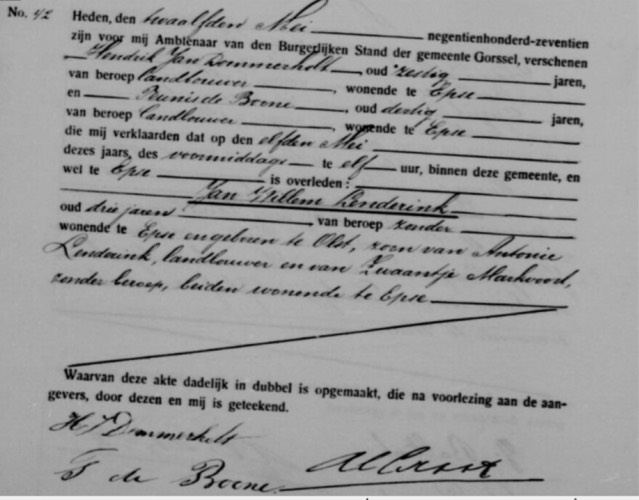 No. 42 Heden, den twaalfden Mei negentienhonderd-zeventien
zijn voor mij Ambtenaar van den Burgerlijken Stand der gemeente Gorssel, verschenen
Hendrik Jan Dommerholt, oud zestig jaren,
van beroep landbouwer, wonende te Epse
en Teunis de Boene, oud dertig jaren,
van beroep landbouwer, wonende te Epse
die mij verklaarden dat op den elfden Mei
dezes jaars, des voormiddags te elf uur, binnen deze gemeente, en
wel te Epse is overleden:
Jan Willem Lenderink
oud drie jaren van beroep zonder
wonende te Epse en geboren te Olst, zoon van Antonie
Lenderink, landbouwer en van Zwaantje Markvoord,
zonder beroep, beiden wonende te Epse
Waarvan deze akte dadelijk in dubbel is opgemaakt, die na voorlezing aan de aan-
gevers, door dezen en mij is geteekend.
H J Dommerholt
T de Boene